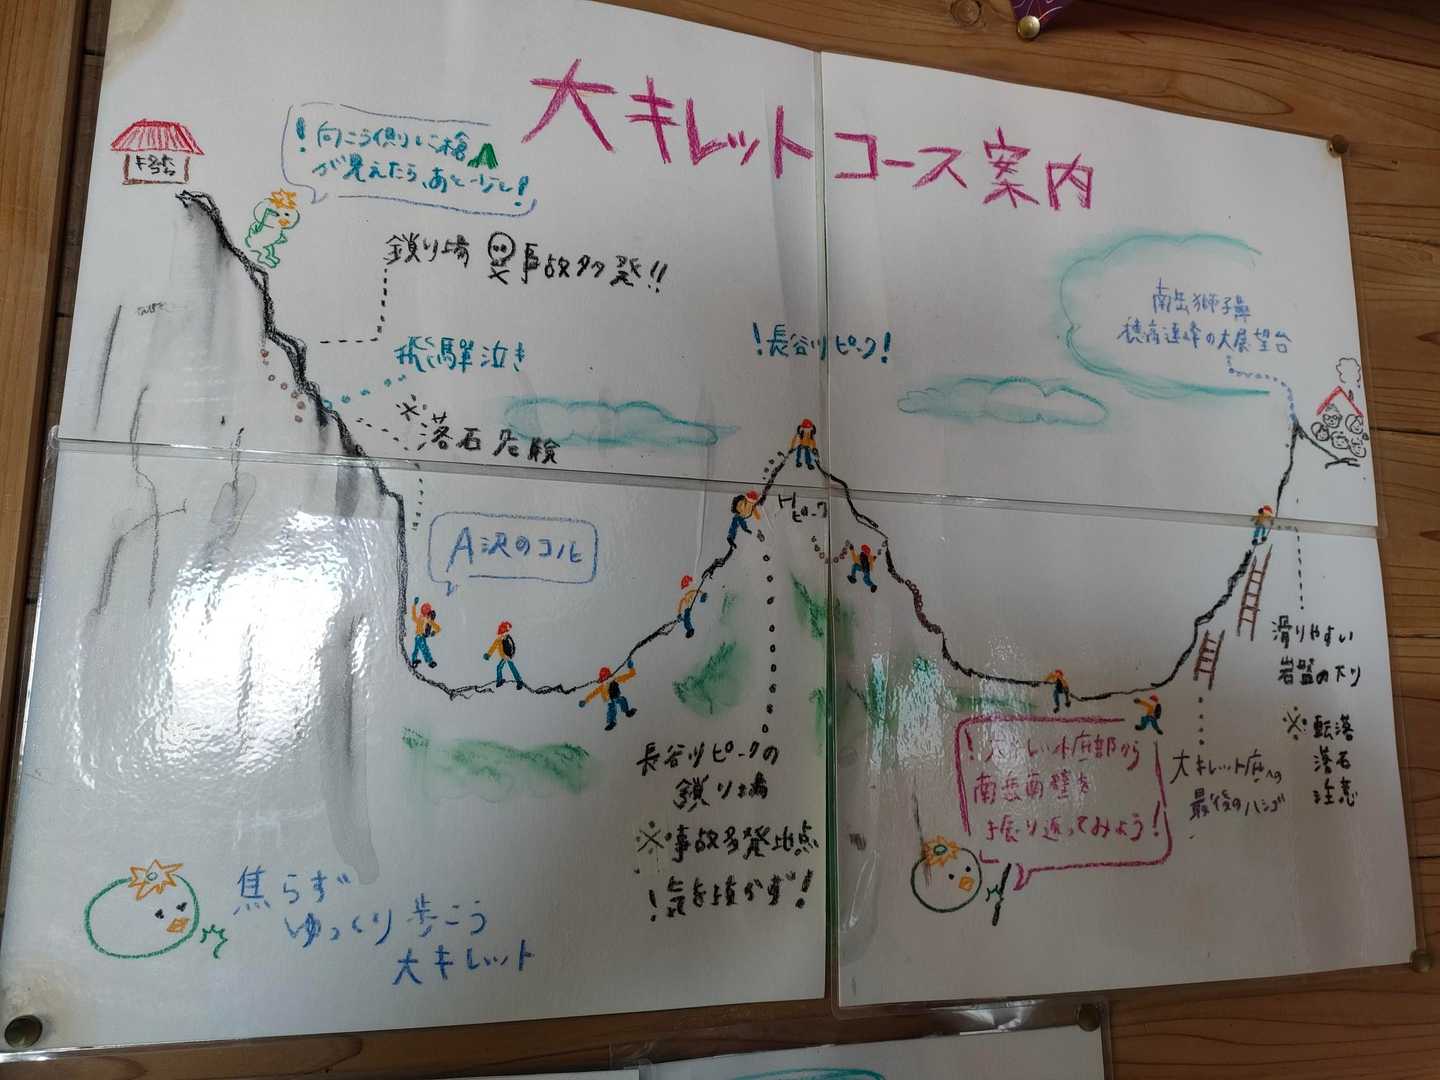 大キレットコース案内
！向こう側に槍
が見えたら、あと少し！
鎖り場 事故多発！！
飛騨泣き
※
落石危険
A沢のコル
！長谷川ピーク！
Hピーク
南岳獅子鼻
穂高連峰の大展望台
長谷川ピークの
鎖り場
※事故多発地点
！気を抜かず！
！大キレット底部から
南岳南壁を
振り返ってみよう！
大キレット底への
最後のハシゴ
滑りやすい
岩盤の下り
※転落
落石
注意
焦らず
ゆっくり歩こう
大キレット